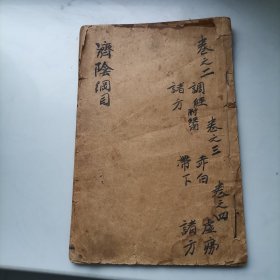 濟陰綱目
卷之二
調經
諸方
卷之三
赤白
帶下
卷之四
虛癆
諸方